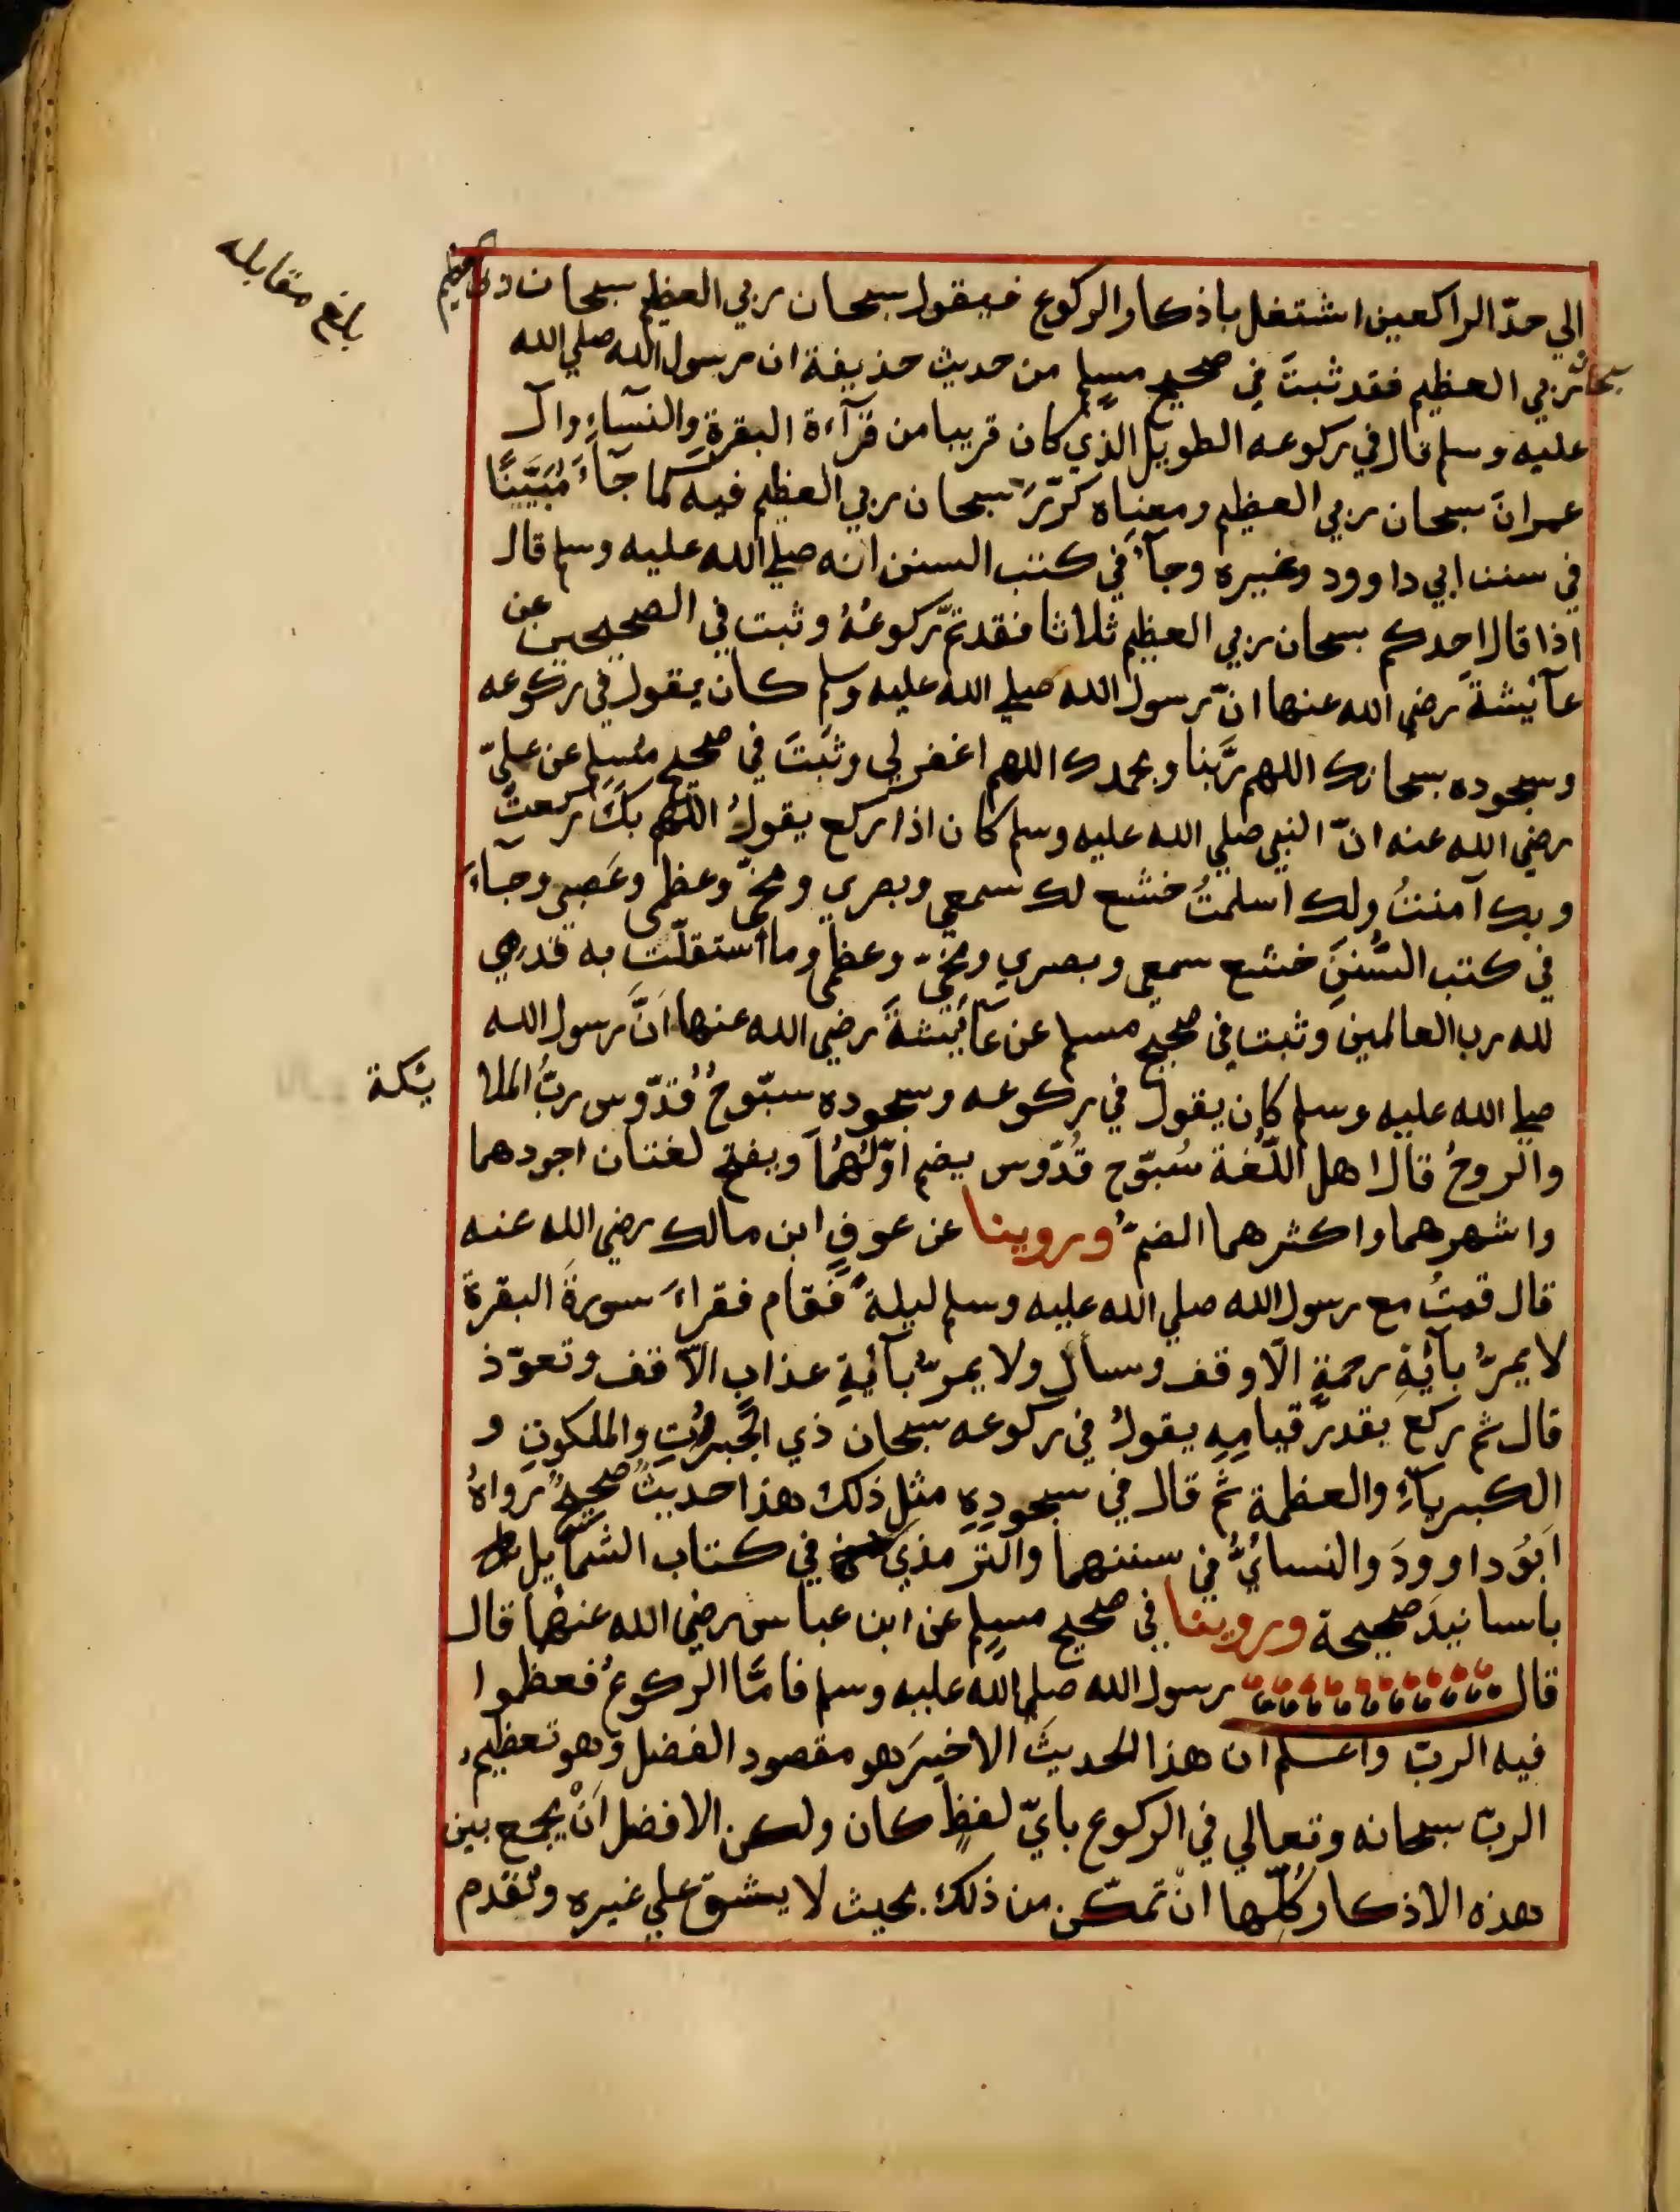 بلغ مقابله
الي حدّ الراكعين اشتغل باذكار الركوع فيقول سبحان ربي العظيم سبحان ربي العظيم
سبحان ربي العظيم فقد ثبتَ في صحيح مسلم من حديث حذيفة ان رسول الله صلي الله
عليه وسلم قال في ركوعه الطويل الذي كان قريبا من قرآءة البقرةِ والنسآءِ وآل
عمرانَ سبحان ربي العظيم ومعناه كرّرَ سبحان ربي العظيم فيه كما جآءَ مُبَيَّنًا
في سنن ابي داوود وغيره وجآءَ في كتب السنن انه صلي الله عليه وسلم قال
اذا قال احدكم سبحان ربي العظيم ثلاثا فقد تمّ ركوعُهُ وثبت في الصحيحين عن
عآئيشةَ رضي الله عنها انّ رسول الله صلي الله عليه وسلم كان يقول في ركوعه
وسجوده سبحانك اللهم ربَّنا وبحمدك اللهم اغفر لي وثبَتَ في صحيح مُسلم عن عليّ
رضي الله عنه انّ النبي صلي الله عليه وسلم كان اذا ركع يقولُ اللهم بكَ ركعتُ
وبك آمنتُ ولك اسلمتُ خشع لك سمعي وبصري ومخّي وعظمي وعَصبي وجآءَ
في كتب السُّننِ خشع سمعي وبصري ومخّي وعظمي وما استقلّت به قدمي
لله رب العالمين وثبت في صحيح مسلم عن عآئيشةَ رضي الله عنها انَّ رسول الله
صلي الله عليه وسلم كان يقول في ركوعه وسجوده سبّوحٌ قُدّوس ربُّ الملا ئيكة
والروحُ قال اهل اللّغة سُبّوح قُدّوس بضم اوّلهُما وبفتح لغتان اجودهما
واشهرهما واكثرهما الضمُّ وروينا عن عوفِ ابن مالك رضي الله عنه
قال قمتُ مع رسول الله صلي الله عليه وسلم ليلةً فقام فقراءَ سورةَ البقرة
لا يمرُّ بآيةِ رحمةٍ الّا وقف وسأل ولا يمرُّ بآيةِ عذابٍ الّا قف وتعوّذ
قال ثم ركع بقدر قيامِهِ يقولُ في ركوعه سبحان ذي الجبروتِ والملكوتِ و
الكبرياءِ والعظمة ثم قال في سجودِهِ مثل ذلك هذا حديثٌ صحيحٌ رواهُ
ابوُ داوودَ والنسائيُّ في سننهما والترمذي في كتاب الشمائيل
باسانيدَ صحيحة وروينا في صحيح مسلم عن ابن عباس رضي الله عنهما قال
قال رسول الله صلي الله عليه وسلم فامّا الركوعُ فعظموا
فيه الربّ واعلم ان هذا الحديثَ الاخيرَ هو مقصود الفضل وهو تعظيم
الربّ سبحانه وتعالي في الركوع بايّ لفظٍ كان ولكن الافضل اَنْ يجمع بين
هذه الاذكار كُلّها انْ تمكّن من ذلك بحيث لا يشقّ علي غيره وتقدم